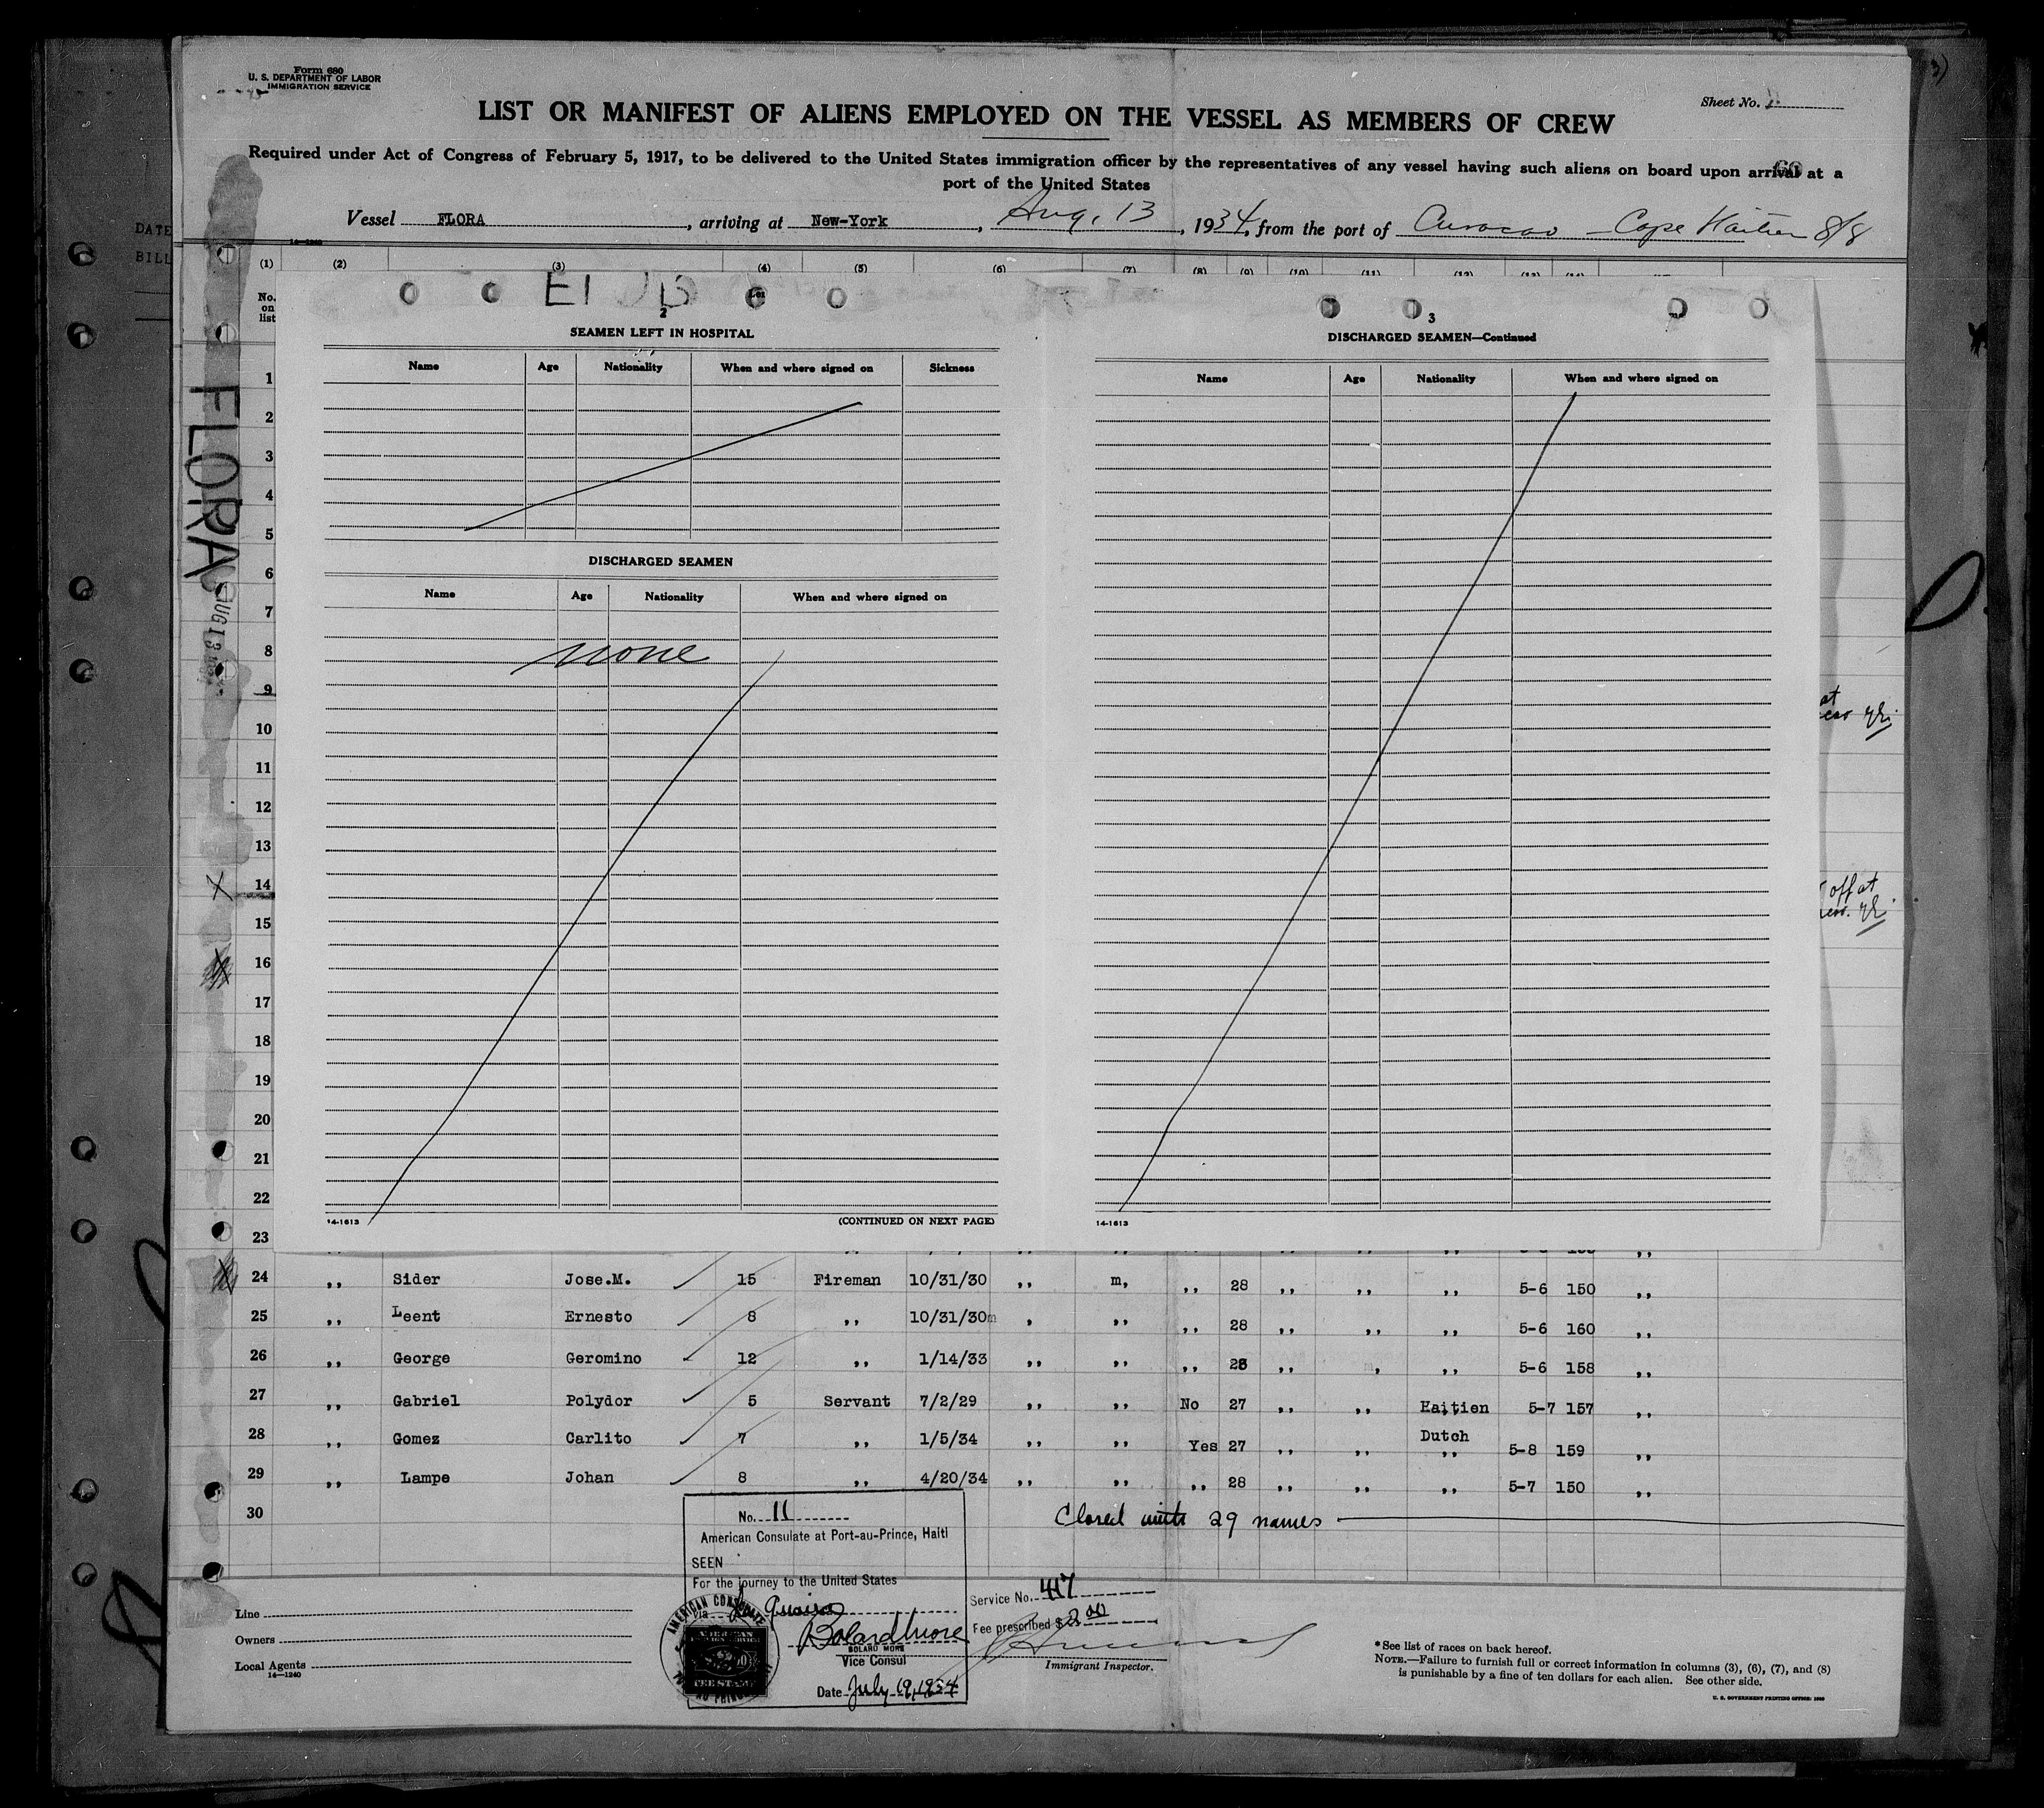 Form 680
U. S. DEPARTMENT OF LABOR
IMMIGRATION SERVICE
Sheet No.
LIST OR MANIFEST OF ALIENS EMPLOYED ON THE VESSEL AS MEMBERS OF CREW
Required under Act of Congress of February 5, 1917, to be delivered to the United States immigration officer by the representatives of any vessel having such aliens on board upon arrival at a
port of the United States
Vessel FLORA, arriving at New-York, Aug. 13, 1934, from the port of Curacao - Cape Haitien 8/8
14-1240
DATE
BILL
(1) (2) (3) (4) (5) (6) (7) (8) (9) (10) (11) (12) (13) (14)
No. on list
FLORA
AUG 13
2
SEAMEN LEFT IN HOSPITAL
Name Age Nationality When and where signed on Sickness
DISCHARGED SEAMEN
Name Age Nationality When and where signed on
none
14-1613 (CONTINUED ON NEXT PAGE)
3
DISCHARGED SEAMEN—Continued
Name Age Nationality When and where signed on
14-1613
at
off at
1
2
3
4
5
6
7
8
9
10
11
12
13
14
15
16
17
18
19
20
21
22
23
24 ,, Sider Jose.M. 15 Fireman 10/31/30 ,, m, ,, 28 ,, ,, ,, 5-6 150 ,,
25 ,, Leent Ernesto 8 ,, 10/31/30m , ,, ,, 28 ,, ,, ,, 5-6 160 ,,
26 ,, George Geromino 12 ,, 1/14/33 ,, ,, ,, 28 ,, , ,, 5-6 158 ,,
27 ,, Gabriel Polydor 5 Servant 7/2/29 ,, ,, No 27 ,, ,, Haitien 5-7 157 ,,
28 ,, Gomez Carlito 7 ,, 1/5/34 ,, ,, Yes 27 ,, ,, Dutch ,, 5-8 159 ,,
29 ,, Lampe Johan 8 ,, 4/20/34 ,, ,, ,, 28 ,, ,, ,, 5-7 150 ,,
30 Closed with 29 names
No. 11
American Consulate at Port-au-Prince, Haiti
SEEN
For the journey to the United States
via
BOLARD MORE
Vice Consul
Date July 19, 1934
AMERICAN CONSULATE
FEE STAMP
Service No. 417
Fee prescribed $ 2.00
Immigrant Inspector.
Line
Owners
Local Agents
14—1240
* See list of races on back hereof.
NOTE.—Failure to furnish full or correct information in columns (3), (6), (7), and (8)
is punishable by a fine of ten dollars for each alien. See other side.
U. S. GOVERNMENT PRINTING OFFICE: